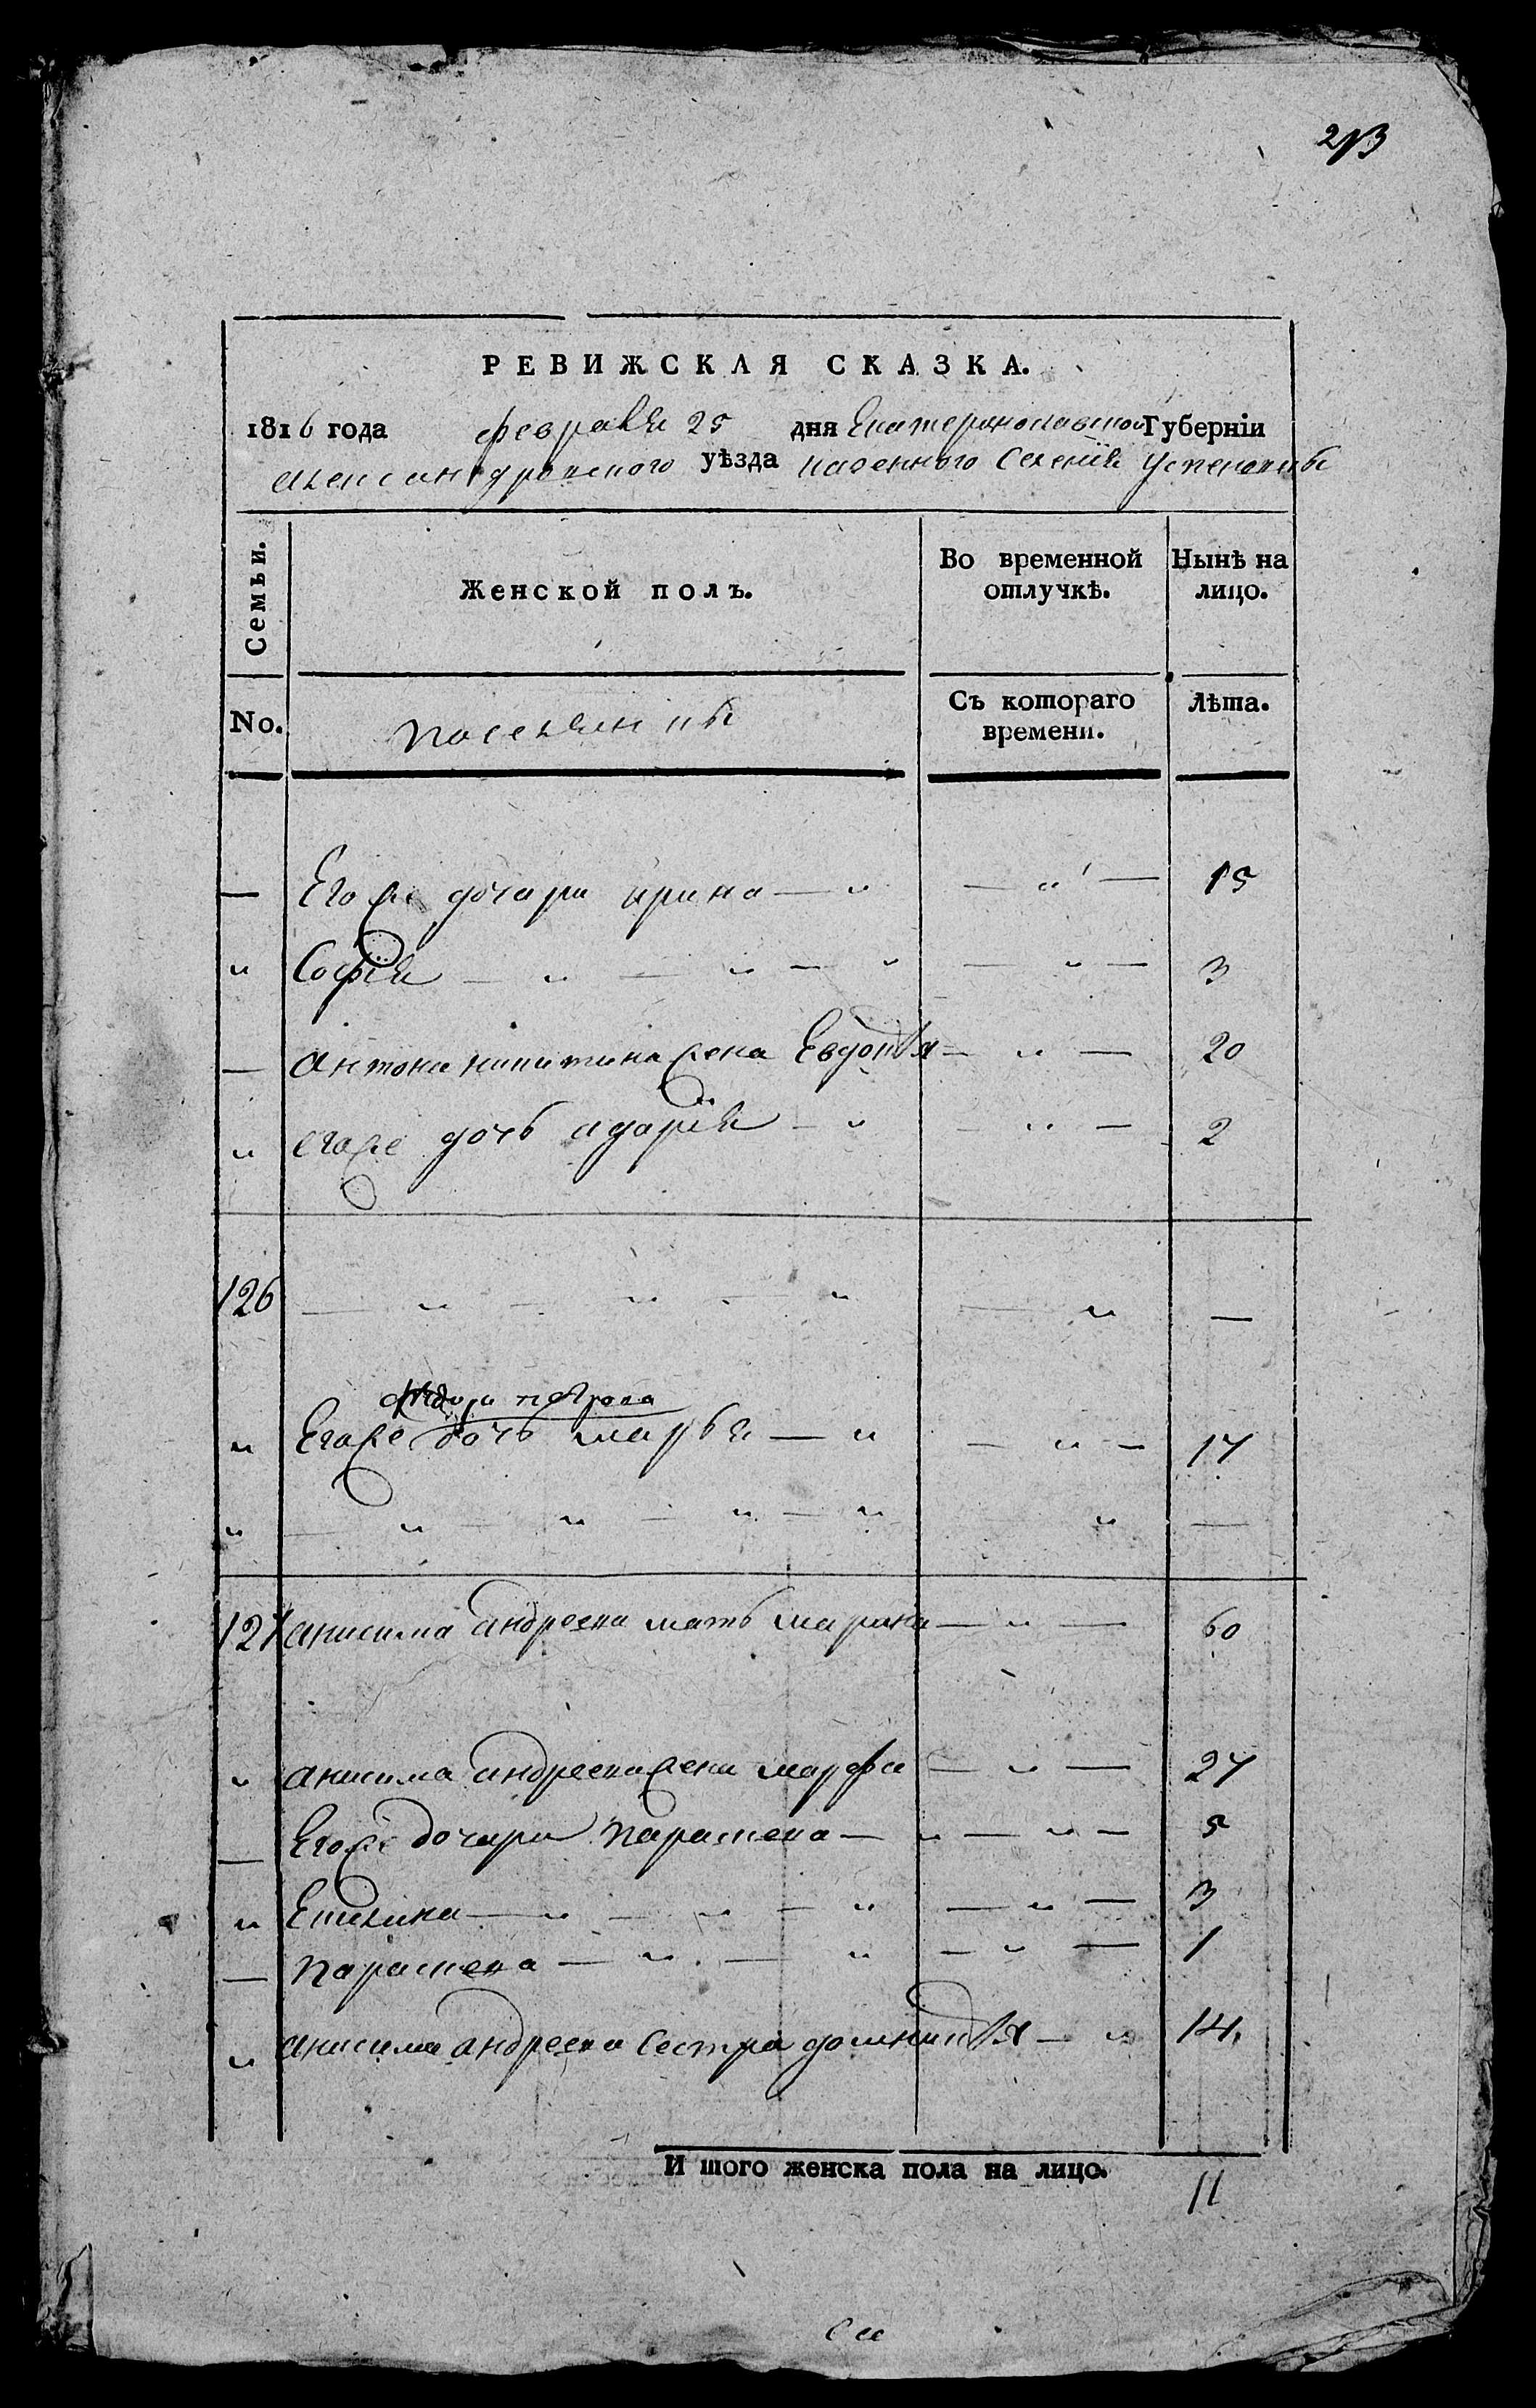 213
РЕВИЖСКАЯ СКАЗКА.
1816 года февраля 25 дня Екатеринославской Губерніи
александровского уѣзда казенного Селенія Успеновкы
Семьи. Женской полъ. Во временной отлучкѣ. Нынѣ на лицо.
No. поселяникы Съ котораго времени. Лѣта.
— Егоже дочери ирина — „ — „ — 15
„ Софія — „ — „ — „ — „ — 3
— антона никитина жена Евдокія — „ — 20
„ егоже дочь одарія — „ — „ — 2
126 — „ — „ — „ — „ —
федора петрова
„ Егоже дочь марья — „ — „ — 17
„ — „ — „ — „ — „ „ —
127 анисима андреева мать марина — „ — 60
„ анисима андреева жена марфа — „ — 27
— Егоже дочери параскева — „ — „ — 5
„ Епилина — „ — „ — „ — „ — 3
— параскева — „ — „ — „ — 1
„ анисима андреева Сестра домникія — „ 14
И того женска пола на лицо. 11